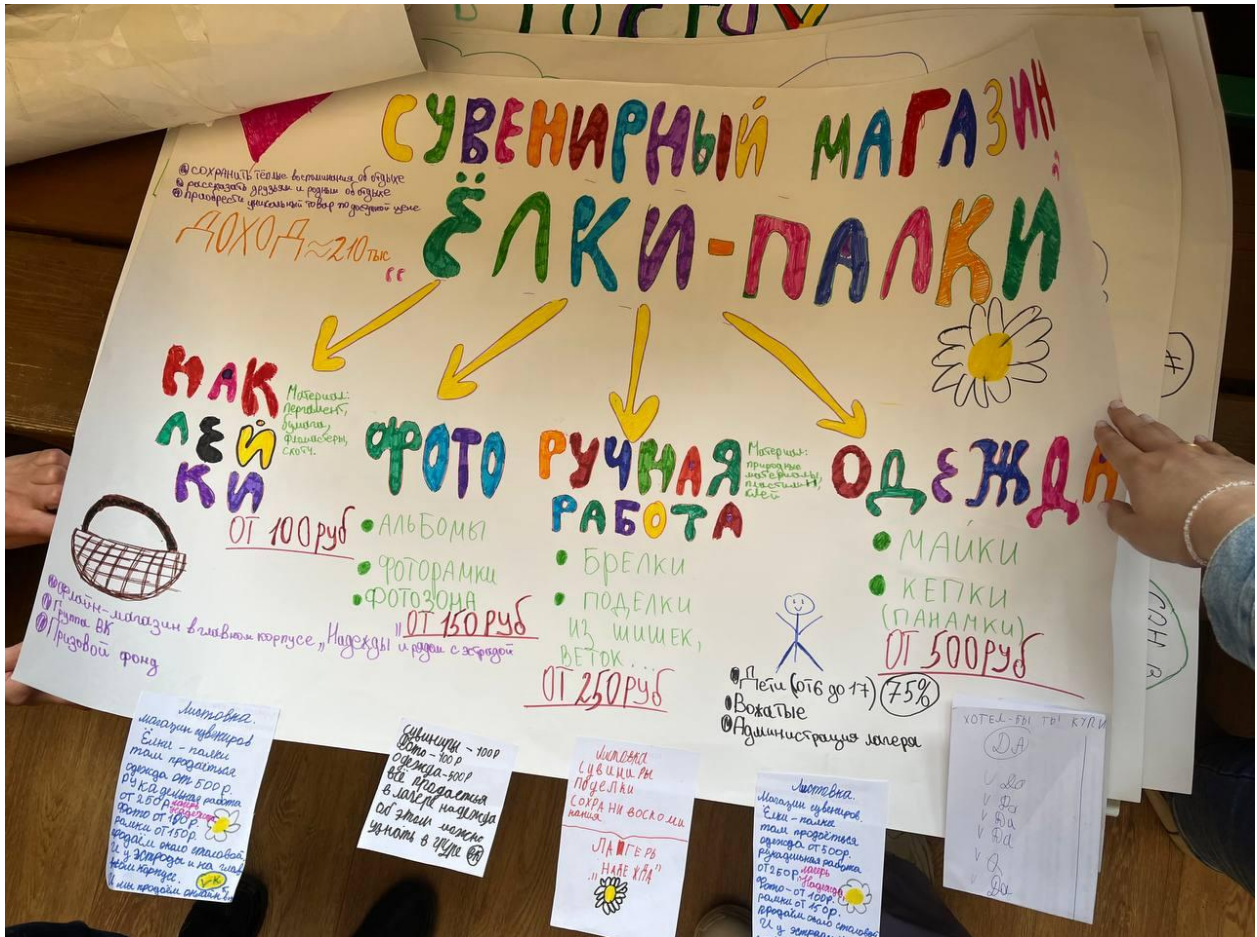 СУВЕНИРНЫЙ МАГАЗИН
"ЁЛКИ-ПАЛКИ"
СОХРАНИТЬ тёплые воспоминания об отдыхе
рассказать друзьям и родным об отдыхе
приобрести уникальный товар по доступной цене
ДОХОД ~ 210 тыс
НАК
ЛЕЙ
КИ
Материал:
пергамент,
бумага,
фломастеры,
скотч.
ОТ 100 руб
ФОТО
АЛЬБОМЫ
ФОТОРАМКИ
ФОТОЗОНА
ОТ 150 РУб
РУЧНАЯ
РАБОТА
Материал:
природные
материалы,
пластилин,
клей
БРЕЛКИ
ПОДЕЛКИ
ИЗ ШИШЕК,
ВЕТОК...
ОТ 250 РУб
ОДЕЖДА
МАЙКИ
КЕПКИ
(ПАНАМКИ)
ОТ 500 руб
офлайн-магазин в главном корпусе „Надежды" и рядом с эстрадой
Группа ВК
Призовой фонд
Дети (от 6 до 17) 75%
Вожатые
Администрация лагеря
Листовка.
магазин сувениров
Ёлки - палки
там продаёться
одежда от 500 р.
рукадельная работа
от 250 р. лагерь
Надежда
фото от 100 р.
рамки от 150 р.
продаём около сталовой
И у эстрады и на глав
ном корпусе.
И мы продаём онлайн в
VK
Сувиниры - 100 р
Фото - 100 р
одежда - 500 р
всё продаеться
в лагере надежда
Об этом можно
узнать в групе ВК
листовка
СУВИНИРЫ
ПОДЕЛКИ
СОХРАНИ ВОСКОМИ
нания
ЛАГЕРЬ
"НАДЕЖДА"
Листовка.
Магазин сувениров.
Ёлки - палки
там продоёться
одежда от 500 р.
рукадильная работа
от 250 р. лагерь
Надежда
Фото - от 100 р.
рамки от 150 р.
продаём около сталовой
И у эстрады
ХОТЕЛ-БЫ ТЫ КУПИ
ДА
Да
Да
Да
Да
Да